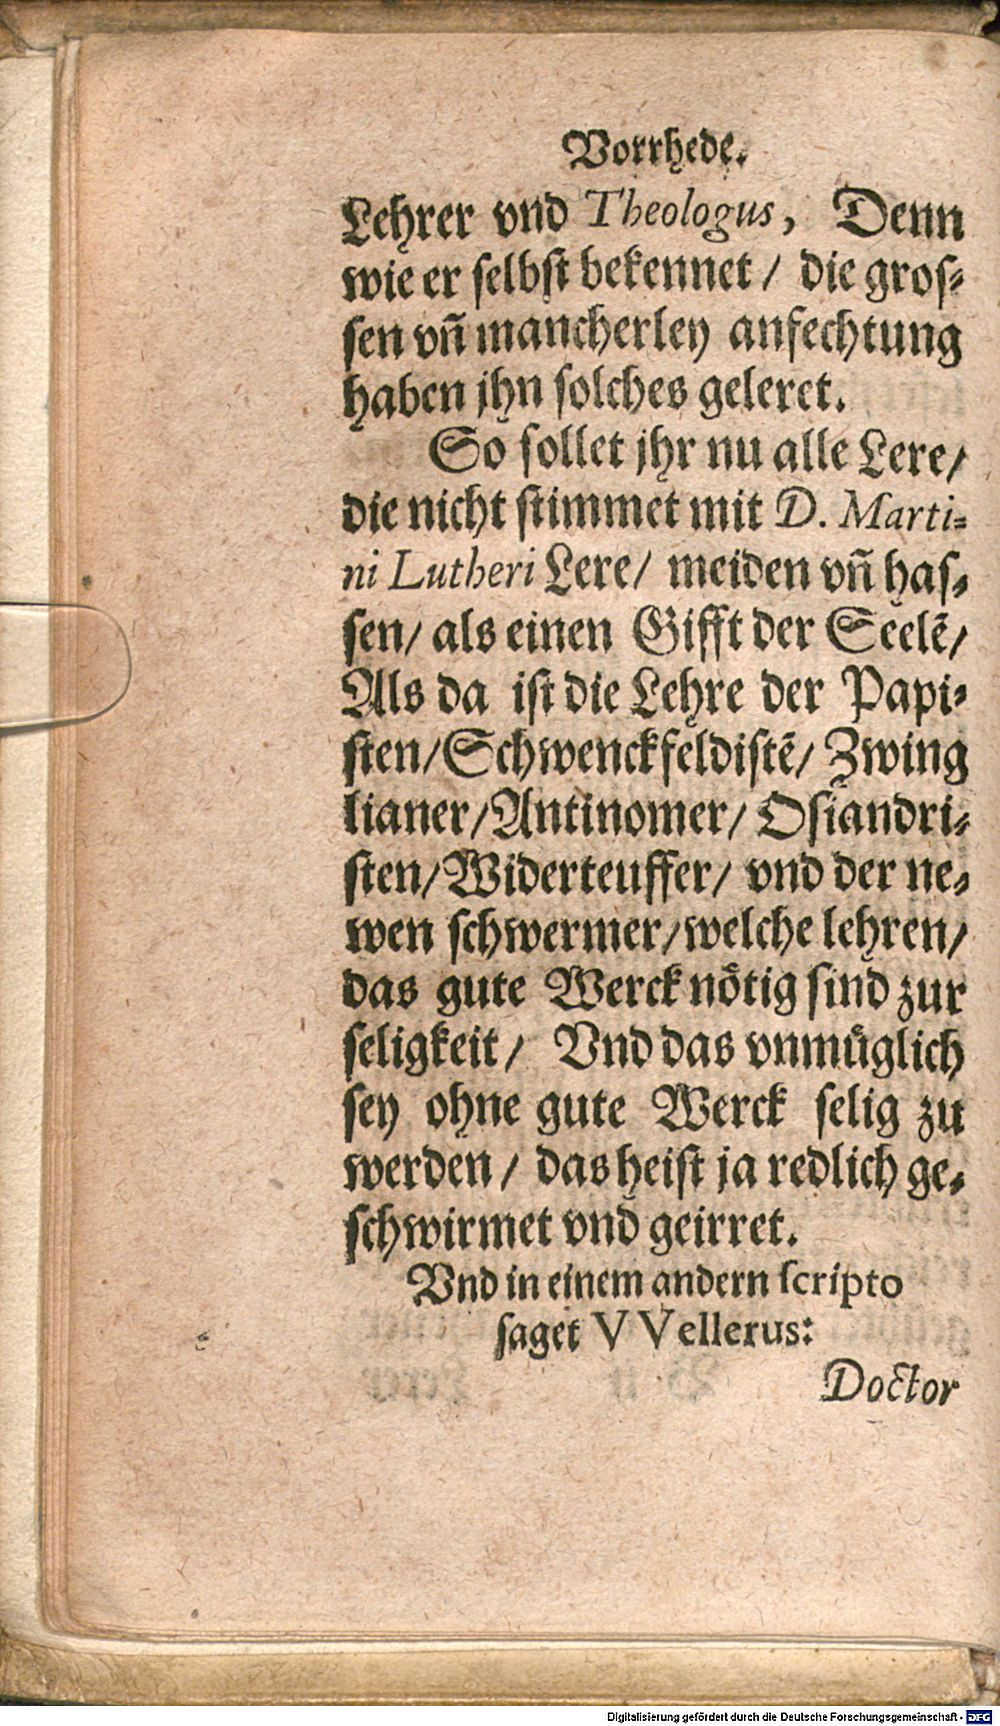 Vorrhede.
Lehrer vnd Theologus, Denn
wie er ſelbſt bekennet / die groſ⸗
ſen vñ mancherley anfechtung
haben jhn ſolches geleret.
So ſollet jhr nu alle Lere/
die nicht ſtimmet mit D. Marti⸗
ni Lutheri Lere/ meiden vñ haſ⸗
ſen/ als einen Gifft der Seelẽ/
Als da iſt die Lehre der Papi⸗
ſten/Schwenckfeldiſtẽ/ Zwing
lianer/Antinomer/ Oſiandri⸗
ſten/Widerteuffer/ vnd der ne⸗
wen ſchwermer/welche lehren/
das gute Werck noͤtig ſind zur
ſeligkeit/ Vnd das vnmuͤglich
ſey ohne gute Werck ſelig zu
werden/ das heiſt ja redlich ge⸗
ſchwirmet vnd geirret.
Vnd in einem andern ſcripto
ſaget VVellerus:
Doctor
Digitalisierung gefördert durch die Deutsche Forschungsgemeinschaft - DFG